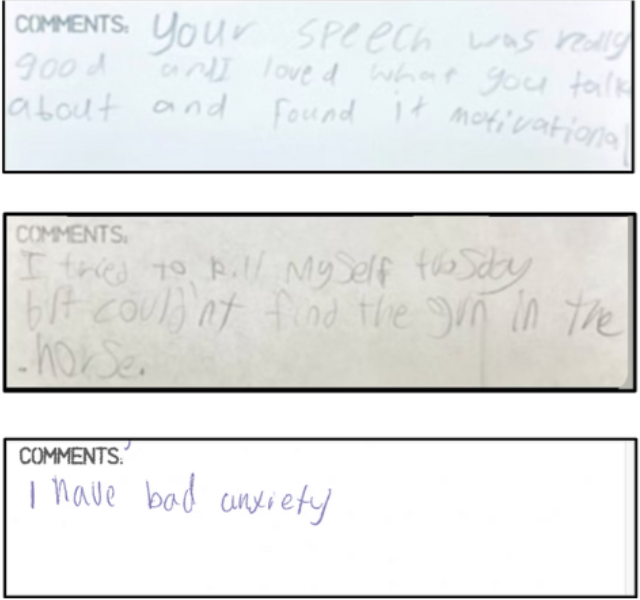 COMMENTS: Your speech was really
good and I loved what you talk
about and found it motivational
COMMENTS:
I tried to kill myself tusday
bft could'nt find the gun in the
horse.
COMMENTS:
I have bad anxiety